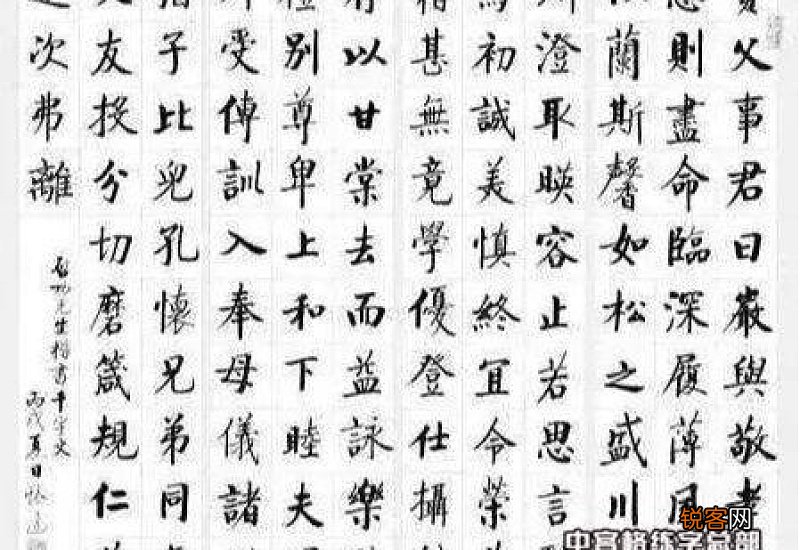 父事君曰嚴與敬孝
忠則盡命臨深履薄夙
蘭斯馨如松之盛川
澄取暎容止若思言
初誠美慎終宜令榮
籍甚無竟學優登仕攝
存以甘棠去而益詠樂
禮別尊卑上和下睦夫
受傅訓入奉母儀諸
猶子比兒孔懷兄弟同
友投分切磨箴規仁
次弗離
啟功先生楷書千字文
丙戌夏日
锐客网